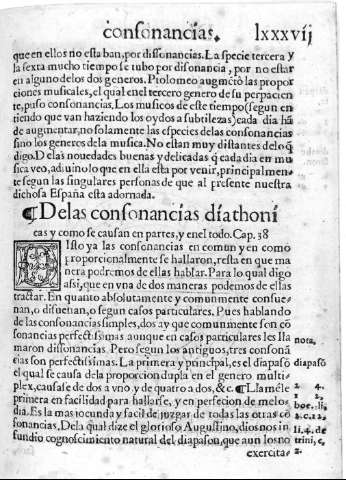 consonancias. lxxxvij
que en ellos no esta ban, por dissonancias. La specie tercera y
la sexta mucho tiempo se tubo por disonancia, por no estar
en alguno delos dos generos. Ptolomeo augmētò las propor
ciones musicales, el qual en el tercero genero de su perpacien
te, puso consonancias. Los musicos de este tiempo (segun en
tiendo que van haziendo los oydos a subtilezas) cada dia hā
de augmentar, no solamente las especies delas consonancias
sino los generos dela musica. No estan muy distantes delo q̄
digo. Delas nouedades buenas y delicadas q̄ cada dia en mu
sica veo, adiuino lo que en ella esta por venir, principalmen-
te segun las singulares personas de que al presente nuestra
dichosa España esta adornada.
¶ Delas consonancias diathoni
cas y como se causan en partes, y en el todo. Cap. 38
VIsto ya las consonancias en comun y en como
proporcionalmente se hallaron, resta en que ma
nera podremos de ellas hablar. Para lo qual digo
assi, que en vna de dos maneras podemos de ellas
tractar. En quanto absolutamente y comunmente consue-
nan, o disuenan, o segun casos particulares. Pues hablando
de las consonancias simples, dos ay que comunmente son cō
sonancias perfectissimas aunque en casos particulares les lla
maron dissonancias. Pero segun los antiguos, tres consonā
cias son perfectissimas. La primera y principal, es el diapasō
el qual se causa dela proporcion dupla en el genero multi-
plex, causase de dos a vno, y de quatro a dos, &c. ¶ Llamēle
primera en facilidad para hallarse, y en perfecion de melo-
dia. Es la mas iocunda y facil de juzgar de todas las otras cō
sonancias. Dela qual dize el glorioso Augustino, dios nos in
fundio cognoscimiento natural del diapason, que aun los no
exercita-
nota,
diapasō
2. 4.
1 2,
boe. li,
2. c. 12,
li. 4. de
trini, c,
2.